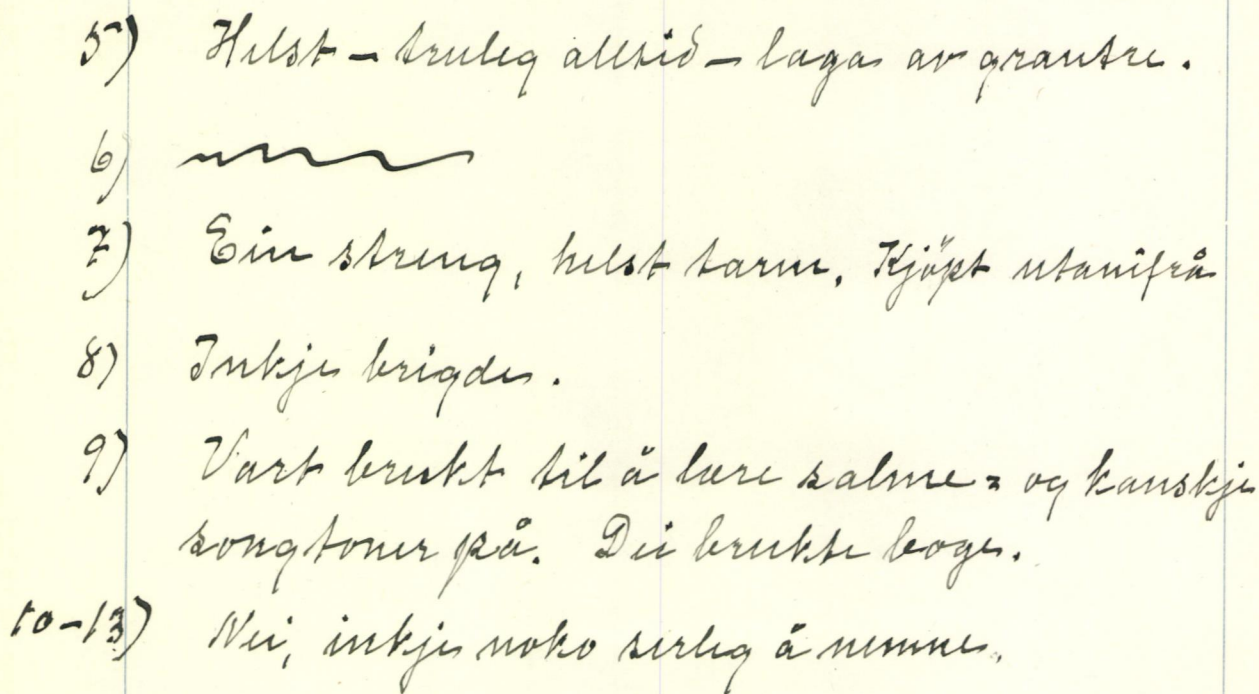 5) Helst – truleg alltid – laga av grantre.
6)
7) Ein streng, helst tarm. Kjöpt utanifrå
8) Inkje brigde.
9) Vart brukt til å lære salme- og kanskje
songtoner på. Dei brukte boge.
10-13) Nei, inkje noko serleg å nemne.